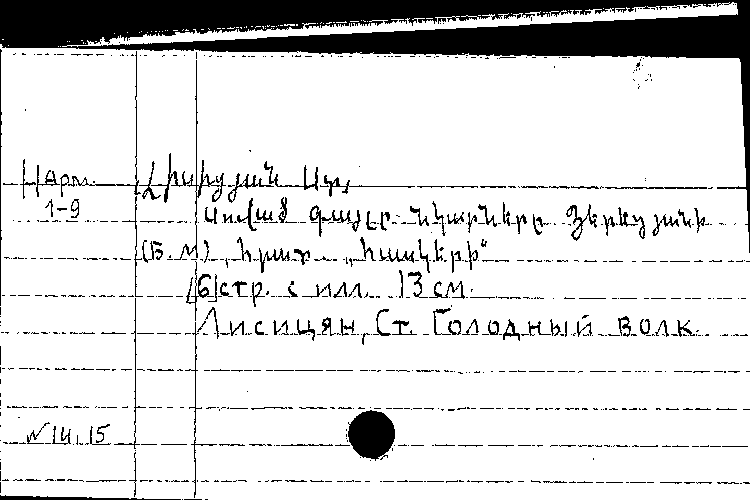 Н Арм.
1-9
Լիսիցյան Ստ.
Սոված գայլը. Նկարները Զերեյյանի
(Б. м), հրատ. „հասկերի“
[6] стр. с илл. 13 см.
Лисицян, Ст. Голодный волк.
N 14.15